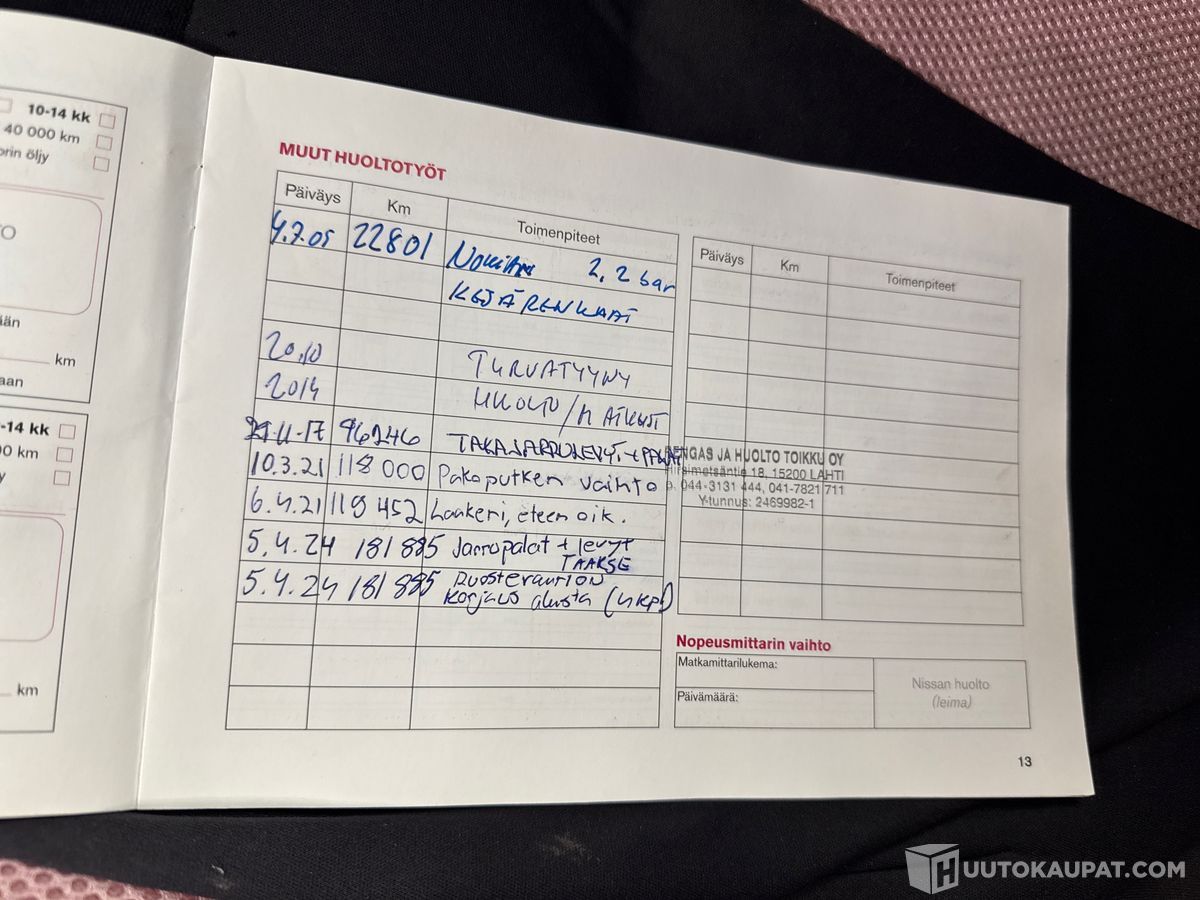 10-14 kk
40 000 km
orin öljy
O
ään
km
aan
-14 kk
00 km
y
km
MUUT HUOLTOTYÖT
Päiväys Km Toimenpiteet
4.7.05 22801 2,2 bar
KESÄRENKAAT
20,10 TURVATYYNY
2014 HUOLTO/
.11-17 96246 TAKAJARRULEVYT +
10.3.21 118 000 Pakoputken vaihto
6.4.21 119 452 Laakeri, eteen oik.
5.4.24 181 885 Jarropalat + levyt
TAAKSE
5.4.24 181 885 Ruostevaurion
Korjaus alusta (4kpl)
Päiväys Km Toimenpiteet
RENGAS JA HUOLTO TOIKKU OY
Hirsimetsäntie 18, 15200 LAHTI
p. 044-3131 444, 041-7821 711
Y-tunnus: 2469982-1
Nopeusmittarin vaihto
Matkamittarilukema:
Päivämäärä:
Nissan huolto
(leima)
13
HUUTOKAUPAT.COM